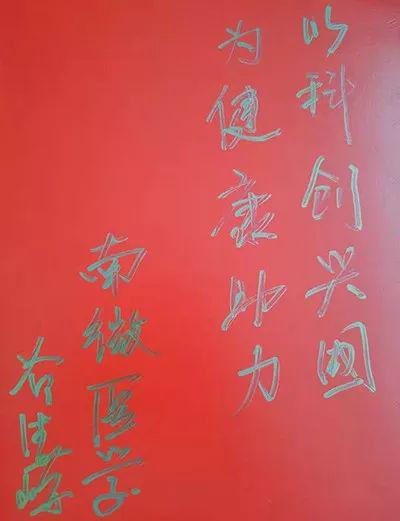 以科创兴国
为健康助力
南微医学